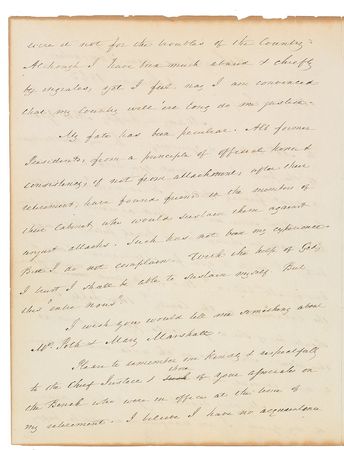 were it not for the troubles of the Country.
Although I have been much abused & chiefly
by ingrates, yet I feel, nay I am convinced
that my Country will ere long do me justice.
My fate has been peculiar. All former
Presidents, from a principle of official honor &
consistency, if not from attachment, after their
retirement, have found friends in the members of
their Cabinet, who would sustain them against
unjust attacks. Such has not been my experience.
But I do not complain. With the help of God,
I trust I shall be able to sustain myself. But
this "entre nous".
I wish you would tell me something about
Mrs. Polk & Mary Marshall.
Please to remember me kindly & respectfully
to the Chief Justice & those of your associates on
the Bench who were in office at the time of
my retirement. I believe I have no acquaintance